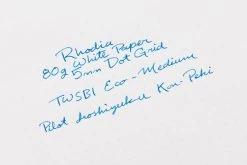 Rhodia
White Paper
80g 5mm Dot Grid
TWSBI Eco - Medium
Pilot Iroshizuku Kon-Peki